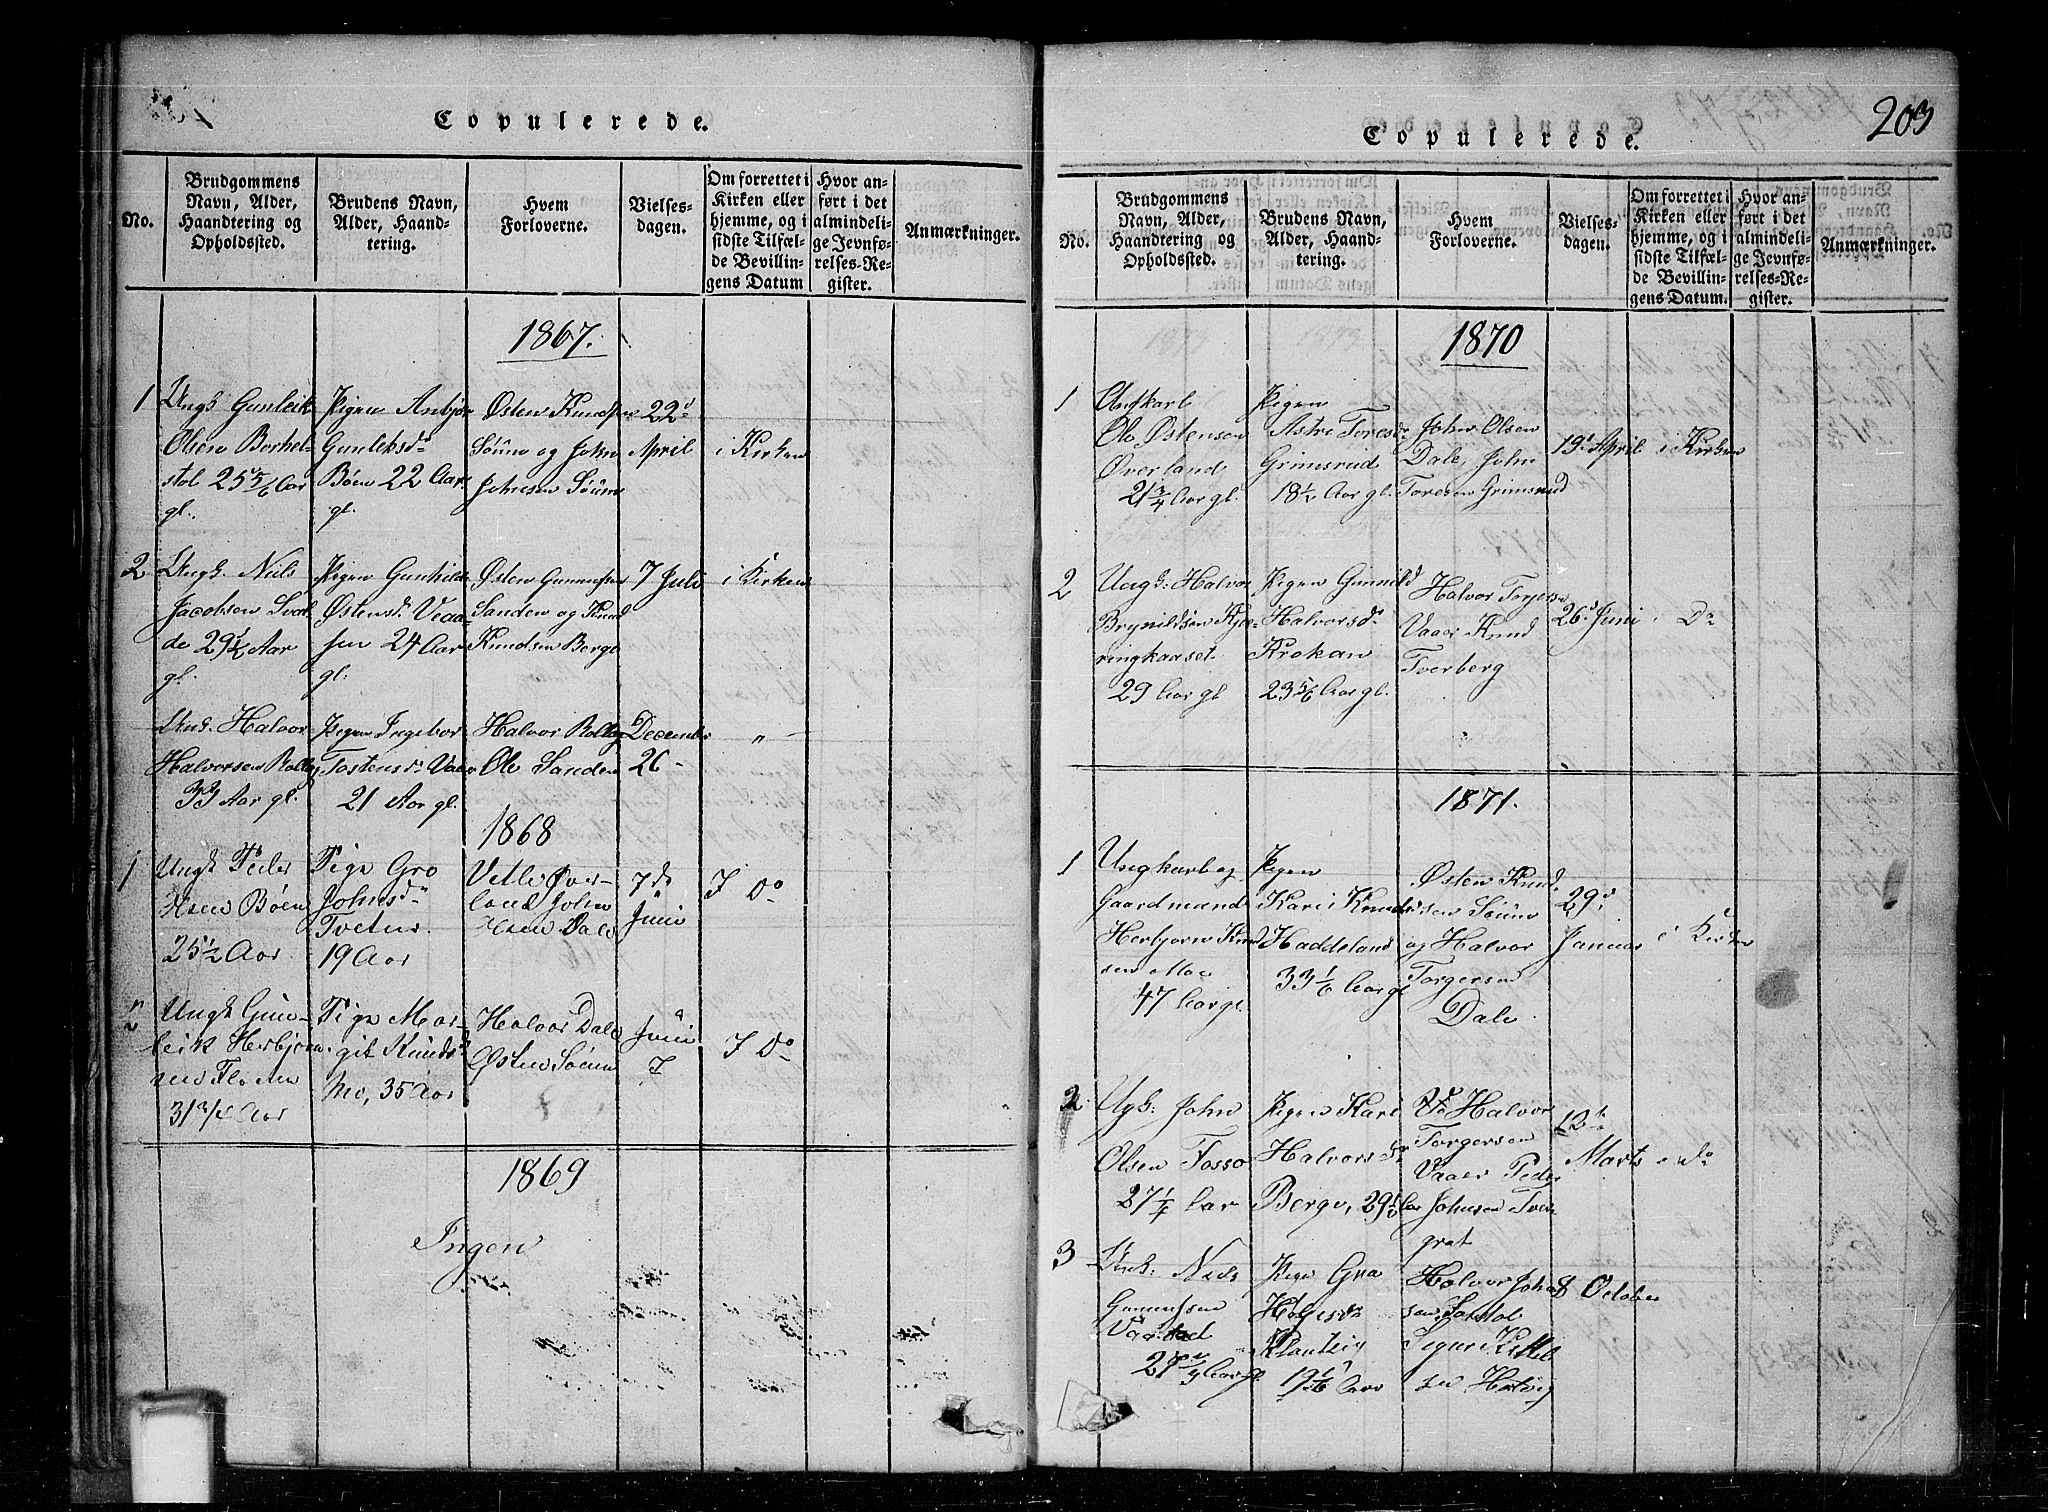 Copulerede.
No.
Brudgommens
Navn, Alder,
Haandtering og
Opholdssted.
Brudens Navn,
Alder, Haand-
tering.
Hvem
Forloverne.
Vielses-
dagen.
Om forrettet i
Kirken eller
hjemme, og i
sidste Tilfæl-
de Bevillin-
gens Datum
Hvor an-
ført i det
almindeli-
ge Jevnfø-
relses-Re-
gister.
Anmærkninger.
1867.
1
Ungk Gunleik
Olsen
stol 25 5/6 Aar
gl.
Pigen Anbjør
Gunleksdr
Bøen 22 Aar
gl.
Østen Knudsen
Søum og John
Johnsen Søum
22d
April
i Kirken
2
Ungk. Nils
Jacobsen
de 29 1/2 Aar
gl.
Pigen Gunhild
Østensdr
24 Aar
gl.
Østen Gunnufsen
Sanden og Knud
Knudsen Berge
7 Juli
i Kirken
Halvor
Halvorsen
33 Aar gl.
Pigen Ingebor
Tostensdr Vaa
21 Aar gl.
Halvor
Ole Sanden
December
26
"
1868
1
Ungk Peder
Bøen
25 1/2 Aar
Pige Gro
Johnsdr
Tvetun
19 Aar
Vetle Øver-
land John
Dale
7de
Juni
I Do
2
Ungk Gun-
leik Herbjørn-
sen
31 3/4 Aar
Pige Mar-
git Knudsd
Mo, 35 Aar
Halvor Dale
Østen Søum
Juni
7
I Do
1869
Ingen
203
Copulerede.
No.
Brudgommens
Navn, Alder,
Haandtering og
Opholdssted.
Brudens Navn,
Alder, Haand-
tering.
Hvem
Forloverne.
Vielses-
dagen.
Om forrettet i
Kirken eller
hjemme, og i
sidste Tilfæl-
de Bevillin-
gens Datum.
Hvor an-
ført i det
almindeli-
ge Jevnfø-
relses-Re-
gister.
Anmærkninger.
1870
1
Ungkarl
Ole Østensen
Øverland
21 3/4 Aar gl.
Pigen
Astri Toresdr
Grimsrud
18 1/2 Aar gl.
John Olsen
Dale, John
Toresen Grimsrud
19d April
i Kirken
2
Ungk: Halvor
Brynildsen Kjæ-
ringkaaset
29 Aar gl
Pigen Gunnild
Halvorsdr
Krokan
23 5/6 Aar gl.
Halvor Torgersen
Vaaer Knud
Tverberg
26d Juni
i Do
1871.
1
Ungkarl og
Gaardmand
Herbjørn Knud
sen Moe
47 Aar gl.
Pigen
Kari Knuds
Haddeland
33 1/6 Aar gl
Østen Knud-
sen Søum
og Halvor
Torgersen
Dale
29d
Januar
i Kirken
2
Ugk: John
Olsen Fosso
27 1/4 Aar
Pigen Kari
Halvorsdr
Berge, 29 1/6 Aar
Halvor
Torgersen
Vaaer Peder
Johnsen Tver
grat
12te
Marts
i do
3
Ungk: Nils
Gunnufsen
Pige Gro
19 1/6 Aar
Halvor Johan
sen
8 October